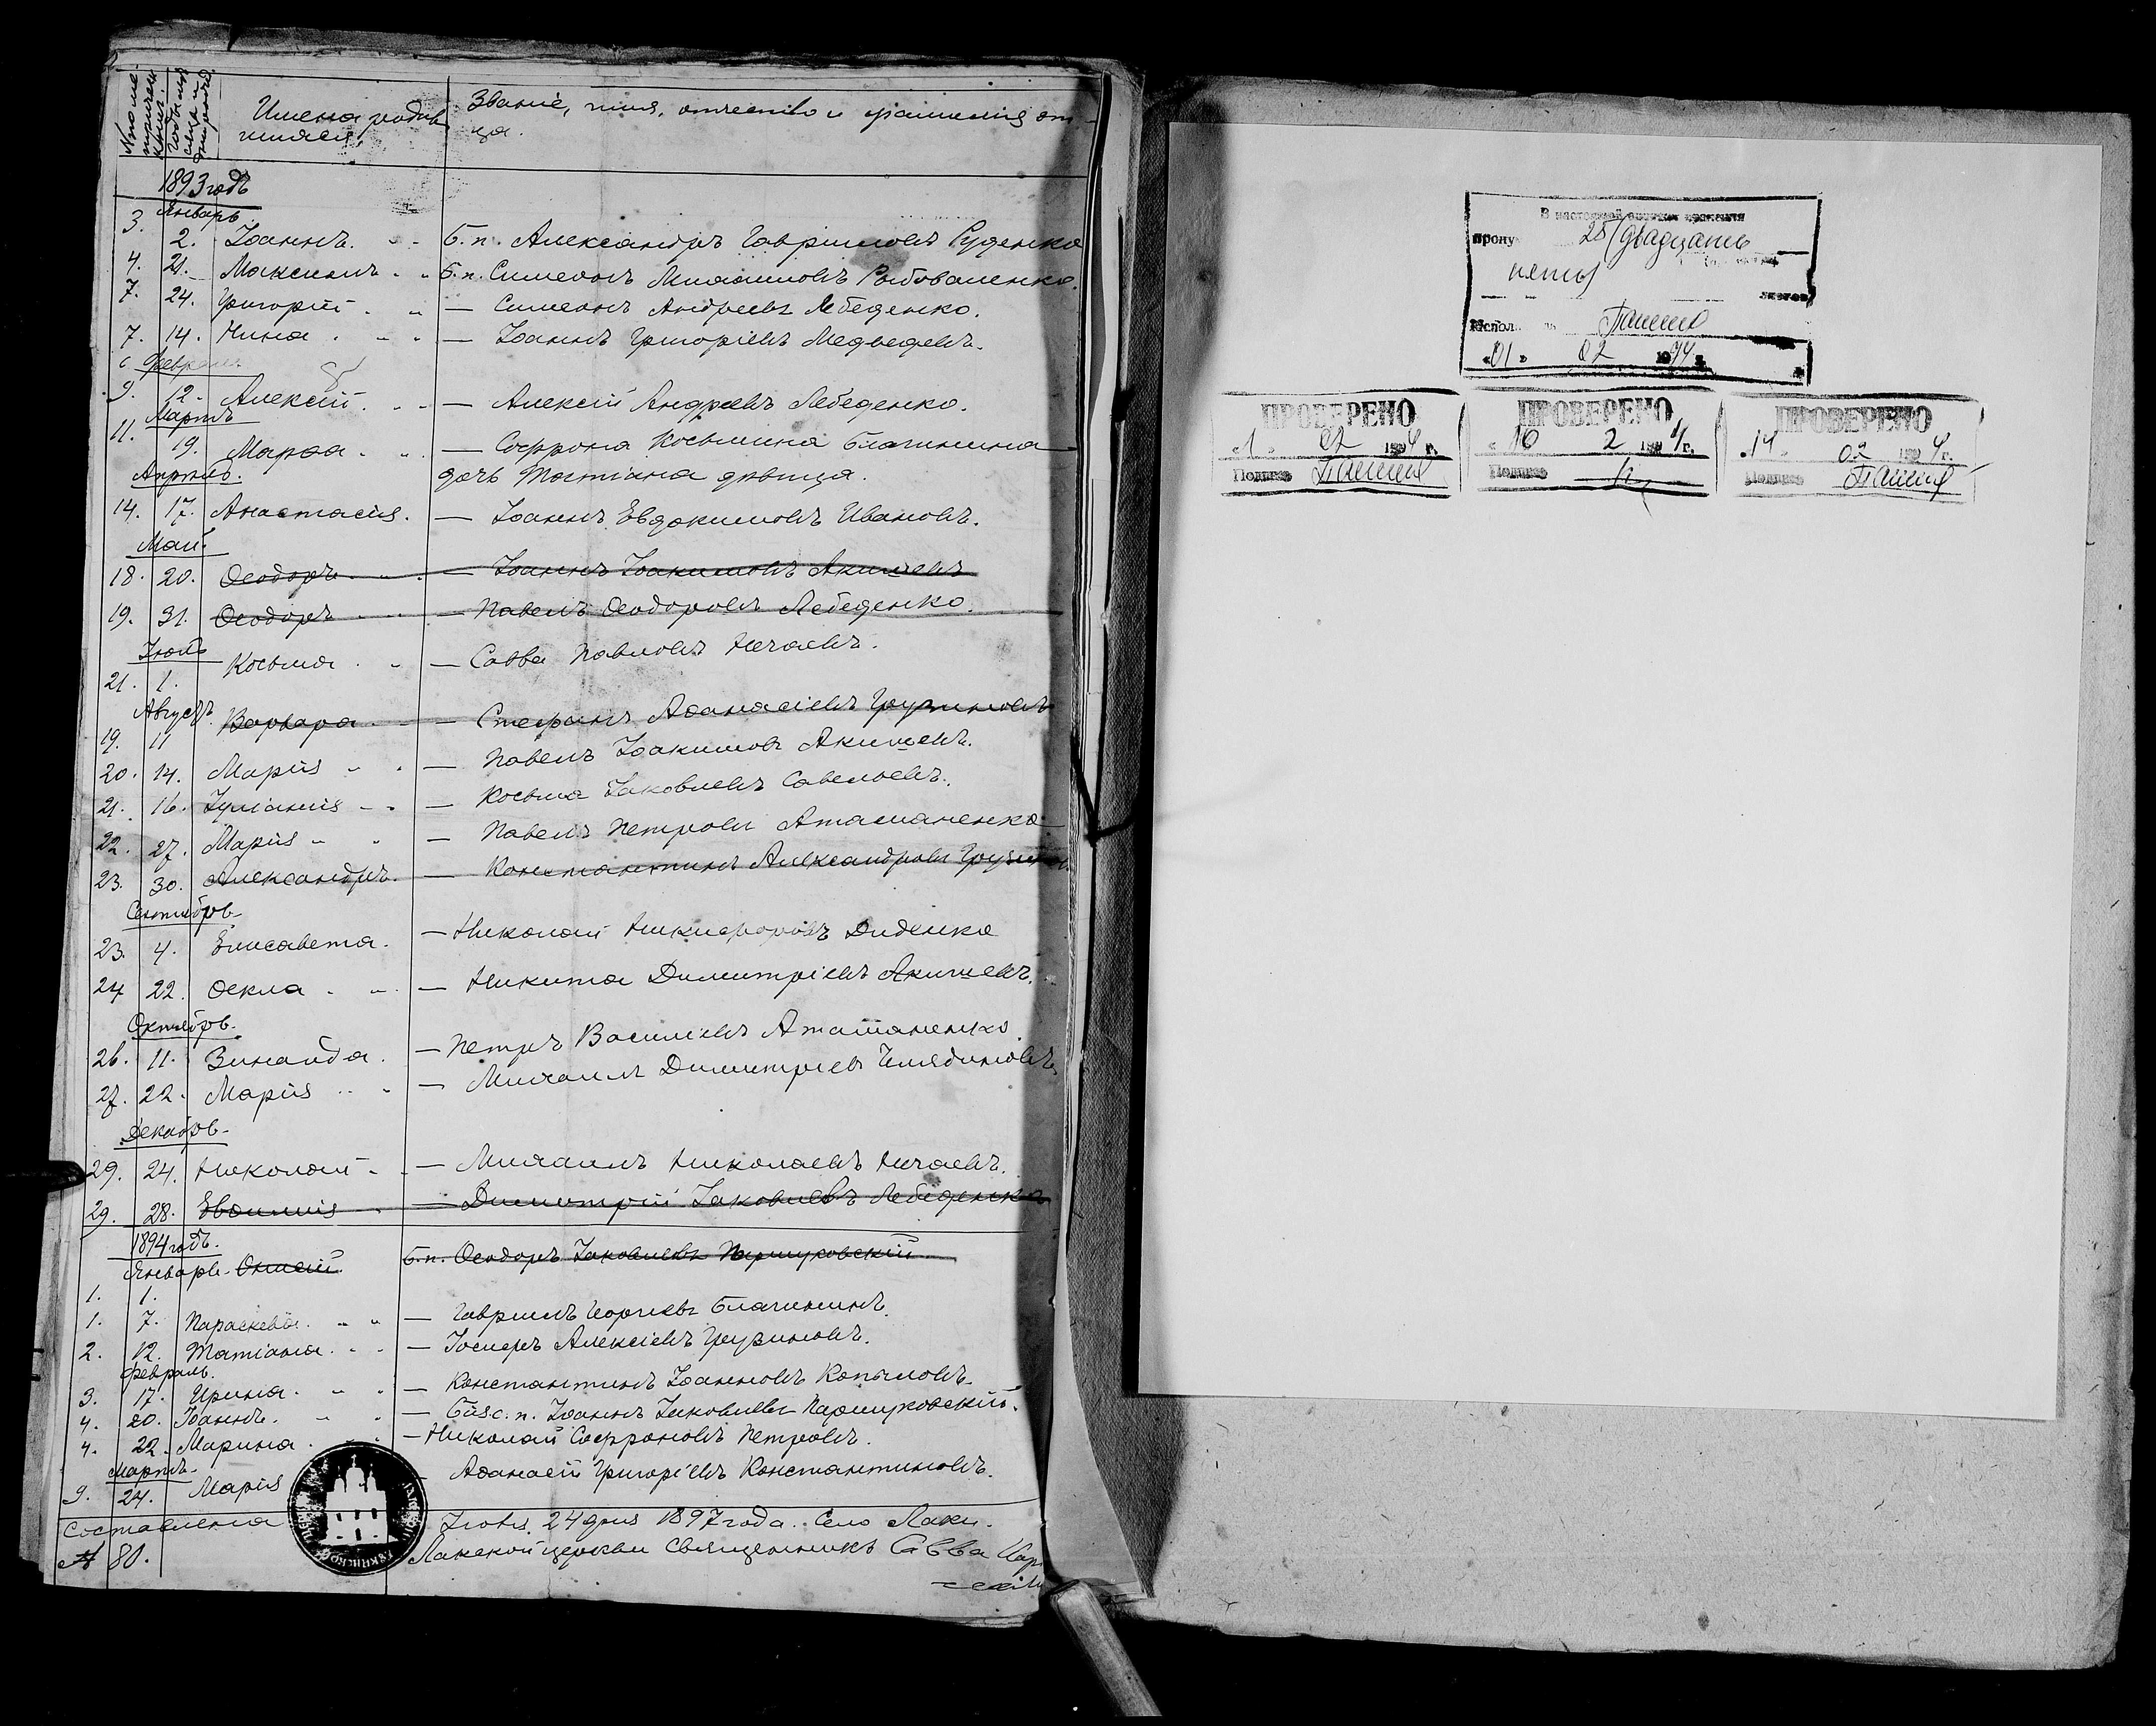 № по ме-
трическ.
книг.
Годъ мѣ-
сяцъ и
день рожд.
Имена родив-
шихся.
Званіе, имя, отчество и фамилія от-
ца.
1893 годъ
Январь.
3. 2. Іоаннъ. Б. п. Александръ Гавріиловъ Руденко
4. 21. Максимъ Б. п. Симеонъ Михаиловъ
7. 24. Григорій — Симеонъ Андреевъ Лебеденко.
7. 14. Нина — Іоаннъ Григоріевъ Медведевъ.
Февраль
9. 12. Алексій — Алексій Андреевъ Лебеденко.
Мартъ
11. 19. Марѳа — Софрона Косьмина Благинина
Апрѣль. дочь Татіана дѣвица.
14. 17. Анастасія. — Іоаннъ Евдокимовъ Ивановъ.
Май.
18. 20. Ѳеодоръ — Іоаннъ Іоакимовъ Акишевъ
19. 31. Ѳеодоръ — Павелъ Ѳеодоровъ Лебеденко.
Іюль
21. 1. Косьма — Савва Павловъ Нечаевъ.
Августъ
19. 11 Варвара — Стефанъ Аѳанасіевъ Грузиновъ
20. 14. Марія — Павелъ Іоакимовъ Акишевъ.
21. 16. Іуліанія — Косьма Іаковлевъ Савельевъ.
22. 27. Марія — Павелъ Петровъ Атаманенко
23. 30. Александръ. — Константинъ Александровъ
Сентябрь
23. 4. Елисавета. — Николай Никифоровъ Диденко
24 22. Ѳекла — Никита Димитріевъ Акишевъ.
Октябрь.
26. 11. Зинаида. — Петръ Василіевъ Атаманенко
27. 22. Марія — Михаилъ Димитріевъ
Декабрь
29. 24. Николай — Михаилъ Николаевъ Нечаевъ.
29. 28. Евѳимія — Димитрій Іаковлевъ Лебеденко
1894 годъ.
Январь. Б. п. Ѳеодоръ Іаковлевъ Паршуковскій
1. 1.
1. 7. Параскева — Гавріилъ Георгіевъ Благининъ.
2. 12. Татіана — Іосифъ Алексіевъ Грузиновъ.
Февраль.
3. 17. Ирина — Константинъ Іоанновъ Копыловъ.
4. 20. Іоаннъ. — Біяс. п. Іоаннъ Іаковлевъ Паршуковскій.
4. 22. Марина — Николай Софроновъ Петровъ.
Мартъ.
9. 24. Марія — Аѳанасій Григоріевъ Константиновъ.
Составлена Іюня, 24 дня 1897 года. Село Лаки.
№ 80. Лакской церкви Священникъ Савва
В настоящей
прону 25 (двадцать
пять)
листов
«01» 02 1994 г.
ПРОВЕРЕНО
«1» 02 1994 г.
Подпись
ПРОВЕРЕНО
«10 2 1994 г.
Подпись
ПРОВЕРЕНО
«14 02 1994 г.
Подпись